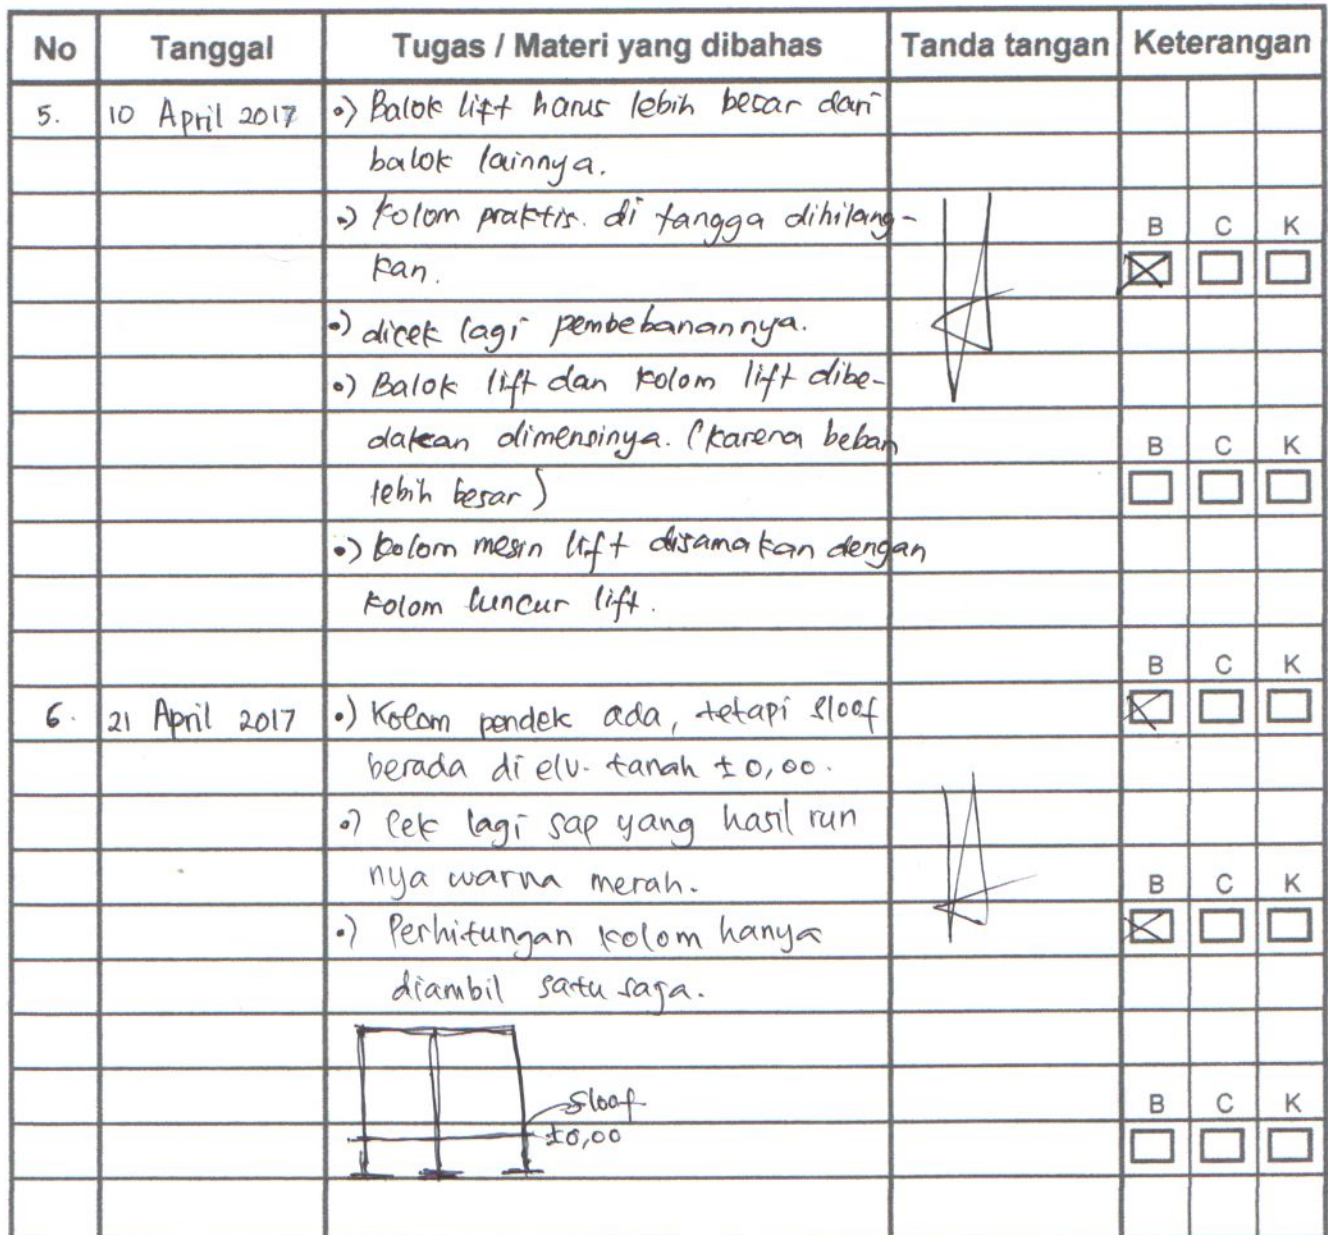 No Tanggal Tugas / Materi yang dibahas Tanda tangan Keterangan
5. 10 April 2017 •) Balok lift harus lebih besar dari
balok lainnya.
•) kolom praktis. di tangga dihilang-
B C K
kan.
•) dicek lagi pembebanannya.
•) Balok lift dan kolom lift dibe-
dakan dimensinya. (karena beban
B C K
lebih besar)
•) kolom mesin lift disamakan dengan
kolom luncur lift.
B C K
6. 21 April 2017 •) Kolom pendek ada, tetapi sloof
berada di elv. tanah ±0,00.
•) Cek lagi sap yang hasil run
nya warna merah.
B C K
•) Perhitungan kolom hanya
diambil satu saja.
Sloof
B C K
±0,00